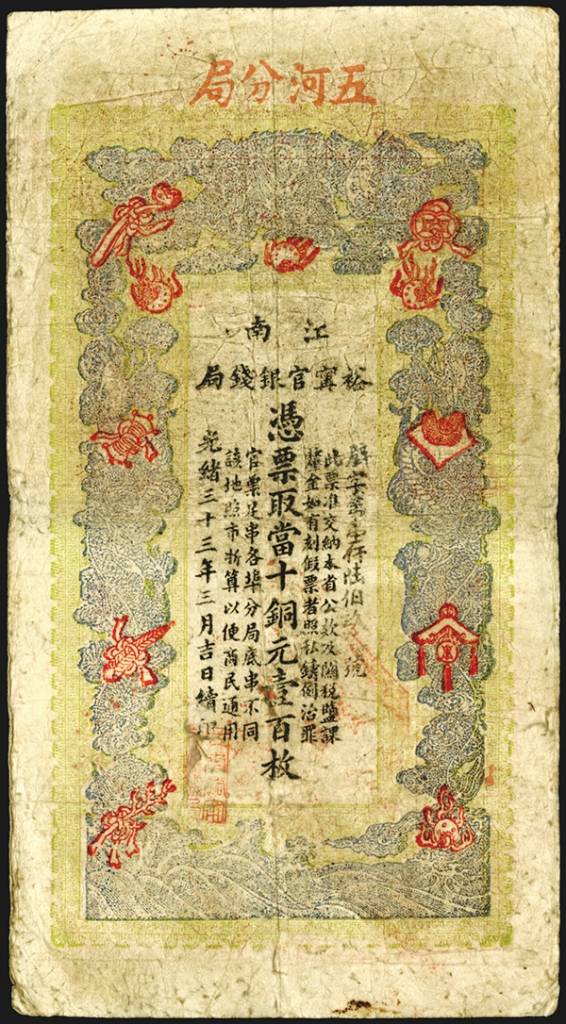 五河分局
江南
裕寧官銀錢局
字第 仟陸佰 號
此票准交納本省公款及關稅鹽課
釐金如有刻假票者照私鑄例治罪
憑票取當十銅元壹百枚
官票足串各埠分局底串不同
該地照市折算以便商民通用
光緒三十三年三月吉日續印